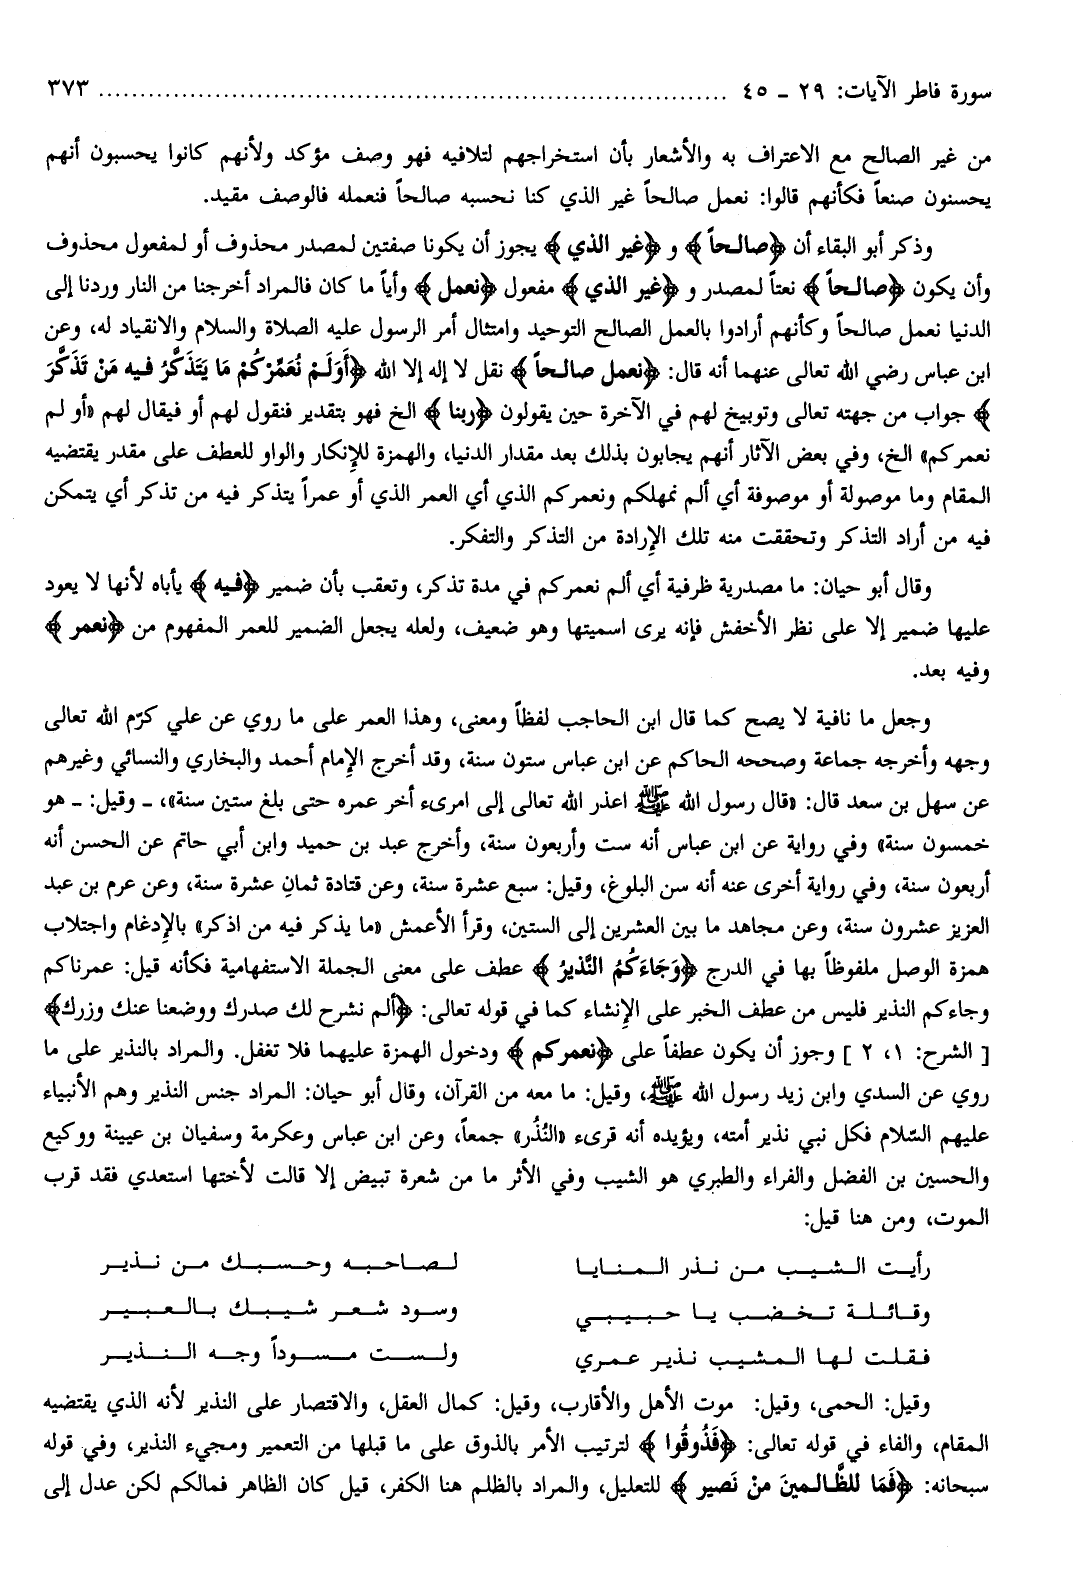 سورة فاطر الآيات: ٢٩ ـ ٤٥ ........................................................................ ٣٧٣
من غير الصالح مع الاعتراف به والأشعار بأن استخراجهم لتلافيه فهو وصف مؤكد ولأنهم كانوا يحسبون أنهم
يحسنون صنعاً فكأنهم قالوا: نعمل صالحاً غير الذي كنا نحسبه صالحاً فنعمله فالوصف مقيد.
وذكر أبو البقاء أن ﴿صالحاً﴾ و ﴿غير الذي﴾ يجوز أن يكونا صفتين لمصدر محذوف أو لمفعول محذوف
وأن يكون ﴿صالحاً﴾ نعتاً لمصدر و ﴿غير الذي﴾ مفعول ﴿نعمل﴾ وأياً ما كان فالمراد أخرجنا من النار وردنا إلى
الدنيا نعمل صالحاً وكأنهم أرادوا بالعمل الصالح التوحيد وامتثال أمر الرسول عليه الصلاة والسلام والانقياد له، وعن
ابن عباس رضي الله تعالى عنهما أنه قال: ﴿نعمل صالحاً﴾ نقل لا إله إلا الله ﴿أَوَلَمْ نُعَمِّرْكُمْ مَا يَتَذَكَّرُ فيه مَنْ تَذَكَّرَ
﴾ جواب من جهته تعالى وتوبيخ لهم في الآخرة حين يقولون ﴿ربنا﴾ الخ فهو بتقدير فنقول لهم أو فيقال لهم «أو لم
نعمركم» الخ، وفي بعض الآثار أنهم يجابون بذلك بعد مقدار الدنيا، والهمزة للإنكار والواو للعطف على مقدر يقتضيه
المقام وما موصولة أو موصوفة أي ألم نمهلكم ونعمركم الذي أي العمر الذي أو عمراً يتذكر فيه من تذكر أي يتمكن
فيه من أراد التذكر وتحققت منه تلك الإرادة من التذكر والتفكر.
وقال أبو حيان: ما مصدرية ظرفية أي ألم نعمركم في مدة تذكر، وتعقب بأن ضمير ﴿فيه﴾ يأباه لأنها لا يعود
عليها ضمير إلا على نظر الأخفش فإنه يرى اسميتها وهو ضعيف، ولعله يجعل الضمير للعمر المفهوم من ﴿نعمر﴾
وفيه بعد.
وجعل ما نافية لا يصح كما قال ابن الحاجب لفظاً ومعنى، وهذا العمر على ما روي عن علي كرّم الله تعالى
وجهه وأخرجه جماعة وصححه الحاكم عن ابن عباس ستون سنة، وقد أخرج الإمام أحمد والبخاري والنسائي وغيرهم
عن سهل بن سعد قال: «قال رسول الله ﷺ اعذر الله تعالى إلى امرىء أخر عمره حتى بلغ ستين سنة»، ـ وقيل: ـ هو
خمسون سنة» وفي رواية عن ابن عباس أنه ست وأربعون سنة، وأخرج عبد بن حميد وابن أبي حاتم عن الحسن أنه
أربعون سنة، وفي رواية أخرى عنه أنه سن البلوغ، وقيل: سبع عشرة سنة، وعن قتادة ثمانِ عشرة سنة، وعن عرم بن عبد
العزيز عشرون سنة، وعن مجاهد ما بين العشرين إلى الستين، وقرأ الأعمش «ما يذكر فيه من اذكر» بالإدغام واجتلاب
همزة الوصل ملفوظاً بها في الدرج ﴿وَجَاءَكُمُ النَّذيرُ﴾ عطف على معنى الجملة الاستفهامية فكأنه قيل: عمرناكم
وجاءكم النذير فليس من عطف الخبر على الإنشاء كما في قوله تعالى: ﴿ألم نشرح لك صدرك ووضعنا عنك وزرك﴾
[ الشرح: ١، ٢ ] وجوز أن يكون عطفاً على ﴿نعمركم﴾ ودخول الهمزة عليهما فلا تغفل. والمراد بالنذير على ما
روي عن السدي وابن زيد رسول الله ﷺ، وقيل: ما معه من القرآن، وقال أبو حيان: المراد جنس النذير وهم الأنبياء
عليهم السّلام فكل نبي نذير أمته، ويؤيده أنه قرىء «النُذُر» جمعاً، وعن ابن عباس وعكرمة وسفيان بن عيينة ووكيع
والحسين بن الفضل والفراء والطبري هو الشيب وفي الأثر ما من شعرة تبيض إلا قالت لأختها استعدي فقد قرب
الموت، ومن هنا قيل:
رأيت الشيب من نذر المنايا لصاحبه وحسبك من نذير
وقائلة تخضب يا حبيبي وسود شعر شيبك بالعبير
فقلت لها المشيب نذير عمري ولست مسوداً وجه النذير
وقيل: الحمى، وقيل: موت الأهل والأقارب، وقيل: كمال العقل، والاقتصار على النذير لأنه الذي يقتضيه
المقام، والفاء في قوله تعالى: ﴿فَذُوقُوا﴾ لترتيب الأمر بالذوق على ما قبلها من التعمير ومجيء النذير، وفي قوله
سبحانه: ﴿فَمَا للظَّالمينَ منْ نَصير﴾ للتعليل، والمراد بالظلم هنا الكفر، قيل كان الظاهر فمالكم لكن عدل إلى